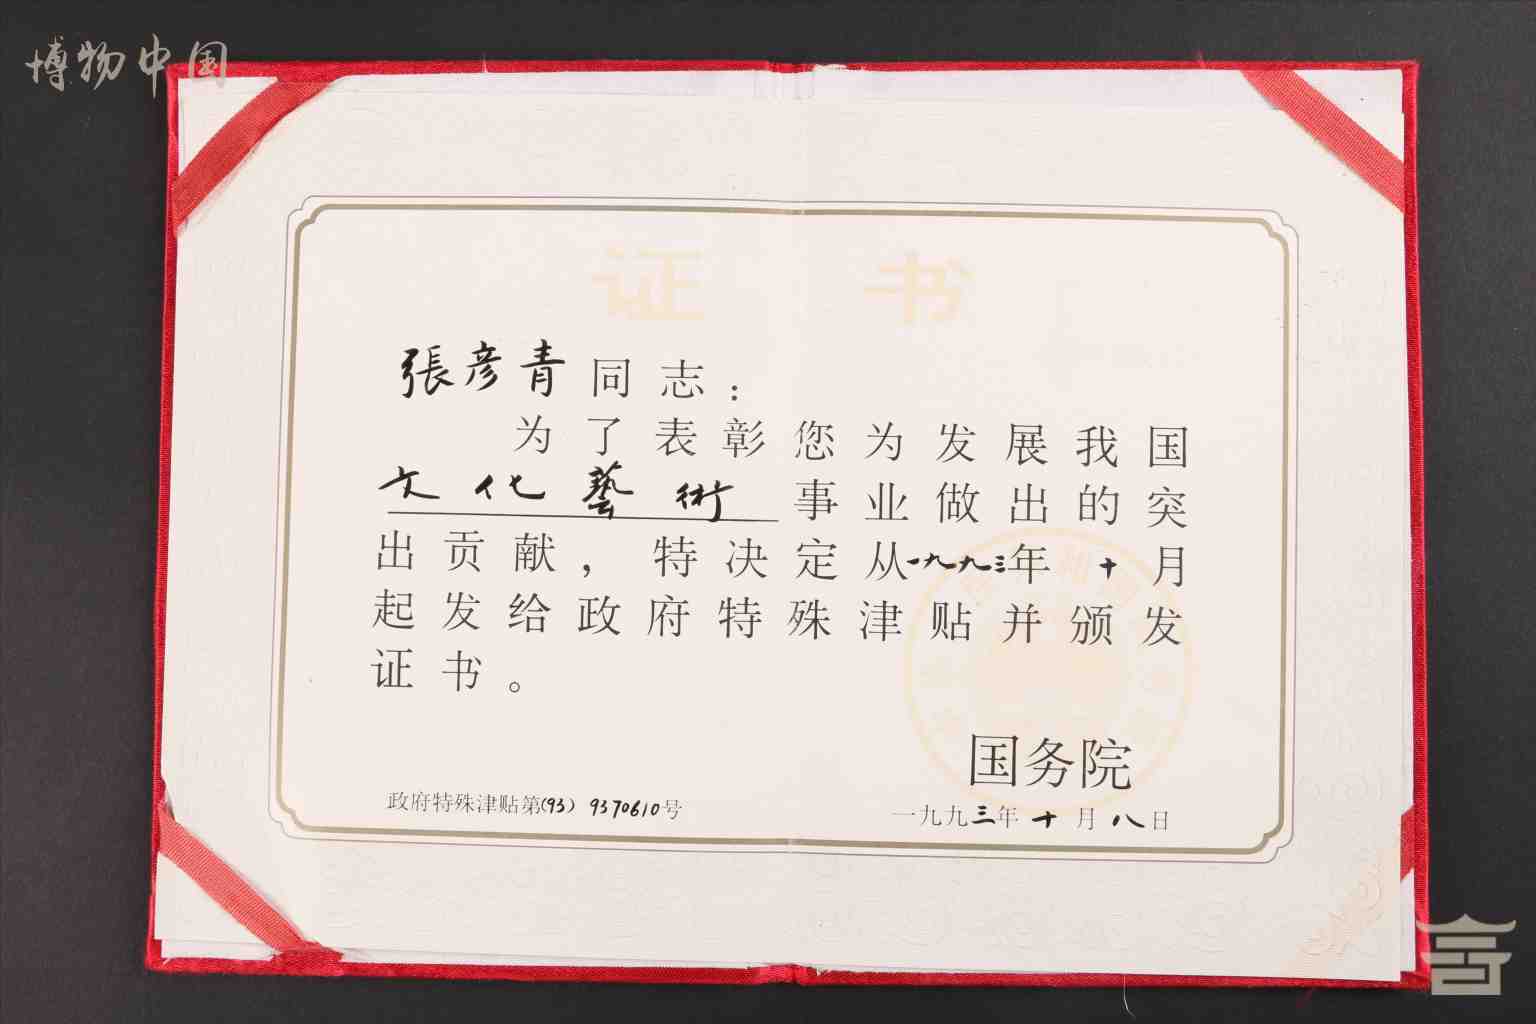 博物中国
证书
張彦青同志：
为了表彰您为发展我国
文化藝術事业做出的突
出贡献，特决定从一九九三年十月
起发给政府特殊津贴并颁发
证书。
国务院
政府特殊津贴第(93)9370610号
一九九三年十月八日